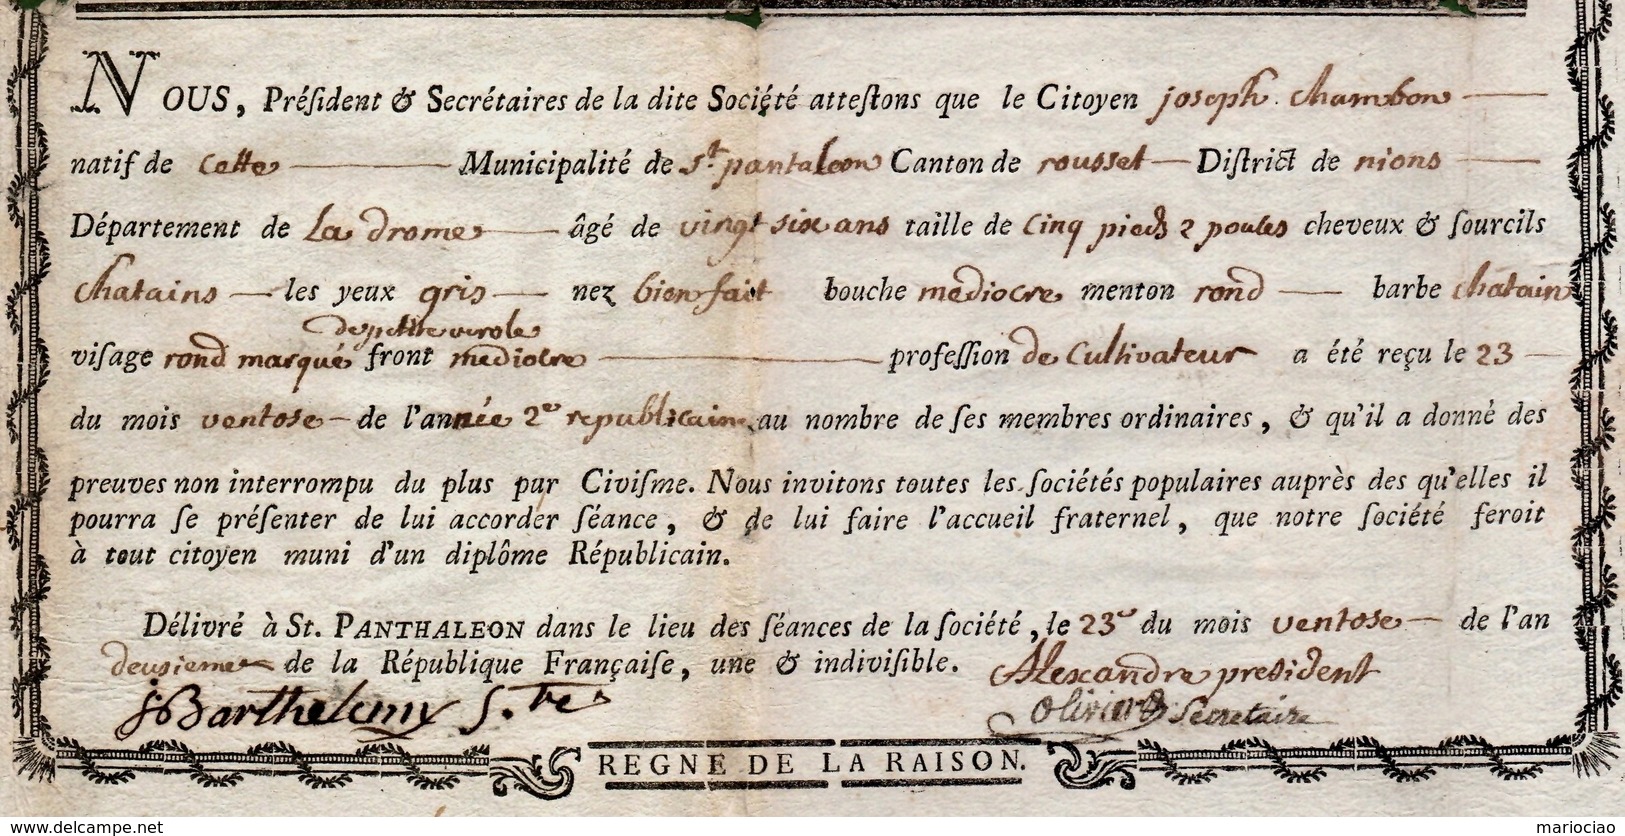 NOUS, Préſident & Secrétaires de la dite Société atteſtons que le Citoyen joseph chambon
natif de cette Municipalité de St pantaleon Canton de rousset Diſtrict de nions
Département de La drome âgé de vingt six ans taille de cinq pieds 2 pouces cheveux & ſourcils
chatains les yeux gris nez bien fait bouche mediocre menton rond barbe chatain
de petite verole
viſage rond marqué front mediocre profeſſion de Cultivateur a été reçu le 23
du mois ventose de l'année 2e republicaine au nombre de ſes membres ordinaires, & qu'il a donné des
preuves non interrompu du plus pur Civiſme. Nous invitons toutes les ſociétés populaires auprès des qu'elles il
pourra ſe préſenter de lui accorder ſéance, & de lui faire l'accueil fraternel, que notre ſociété feroit
à tout citoyen muni d'un diplôme Républicain.
Délivré à St. PANTHALEON dans le lieu des ſéances de la ſociété, le 23e du mois ventose de l'an
deusieme de la République Françaiſe, une & indiviſible. Alexandre president
Barthelemy S.tre Olivier Secretaire
REGNE DE LA RAISON.
www.delcampe.net mariociao